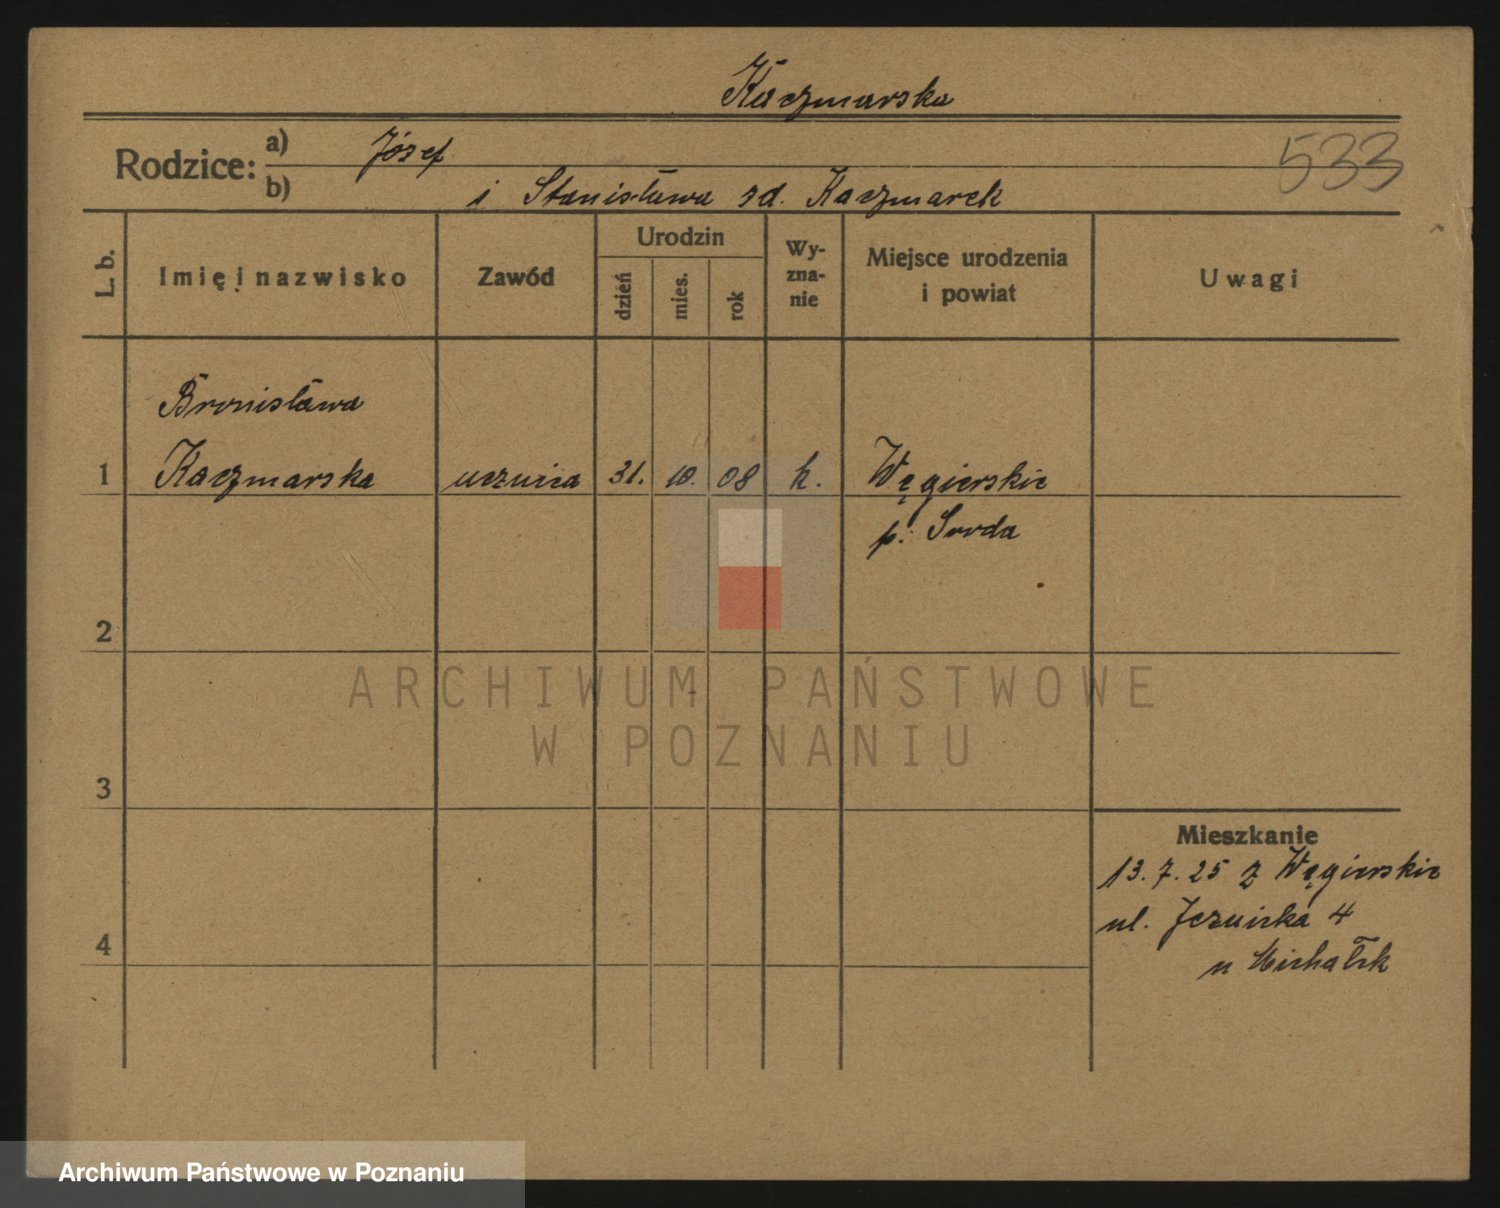 Kaczmarska
533
Rodzice: a) Józef
b) i Stanisława zd. Kaczmarek
L. b.
Imię i nazwisko
Zawód
Urodzin
dzień
mies.
rok
Wy-
zna-
nie
Miejsce urodzenia
i powiat
Uwagi
Bronisława
1 Kaczmarska ucznica 31. 10. 08 k. Węgierskie
p. Środa
2
3
4
Mieszkanie
13.7.25 z Węgierskie
ul. Jezuicka 4
u Michałek
ARCHIWUM PAŃSTWOWE
W POZNANIU
Archiwum Państwowe w Poznaniu